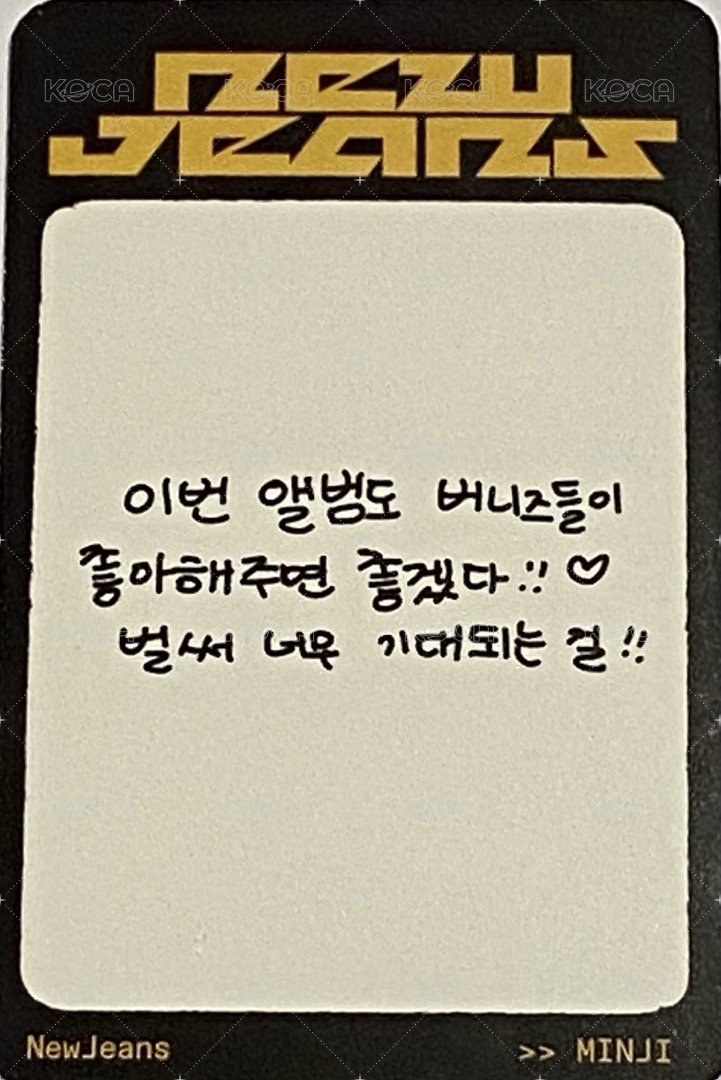 KOCA KOCA KOCA KOCA
NEW
JEANS
이번 앨범도 버니즈들이
좋아해주면 좋겠다!! ♡
벌써 너무 기대되는 걸!!
NewJeans >> MINJI